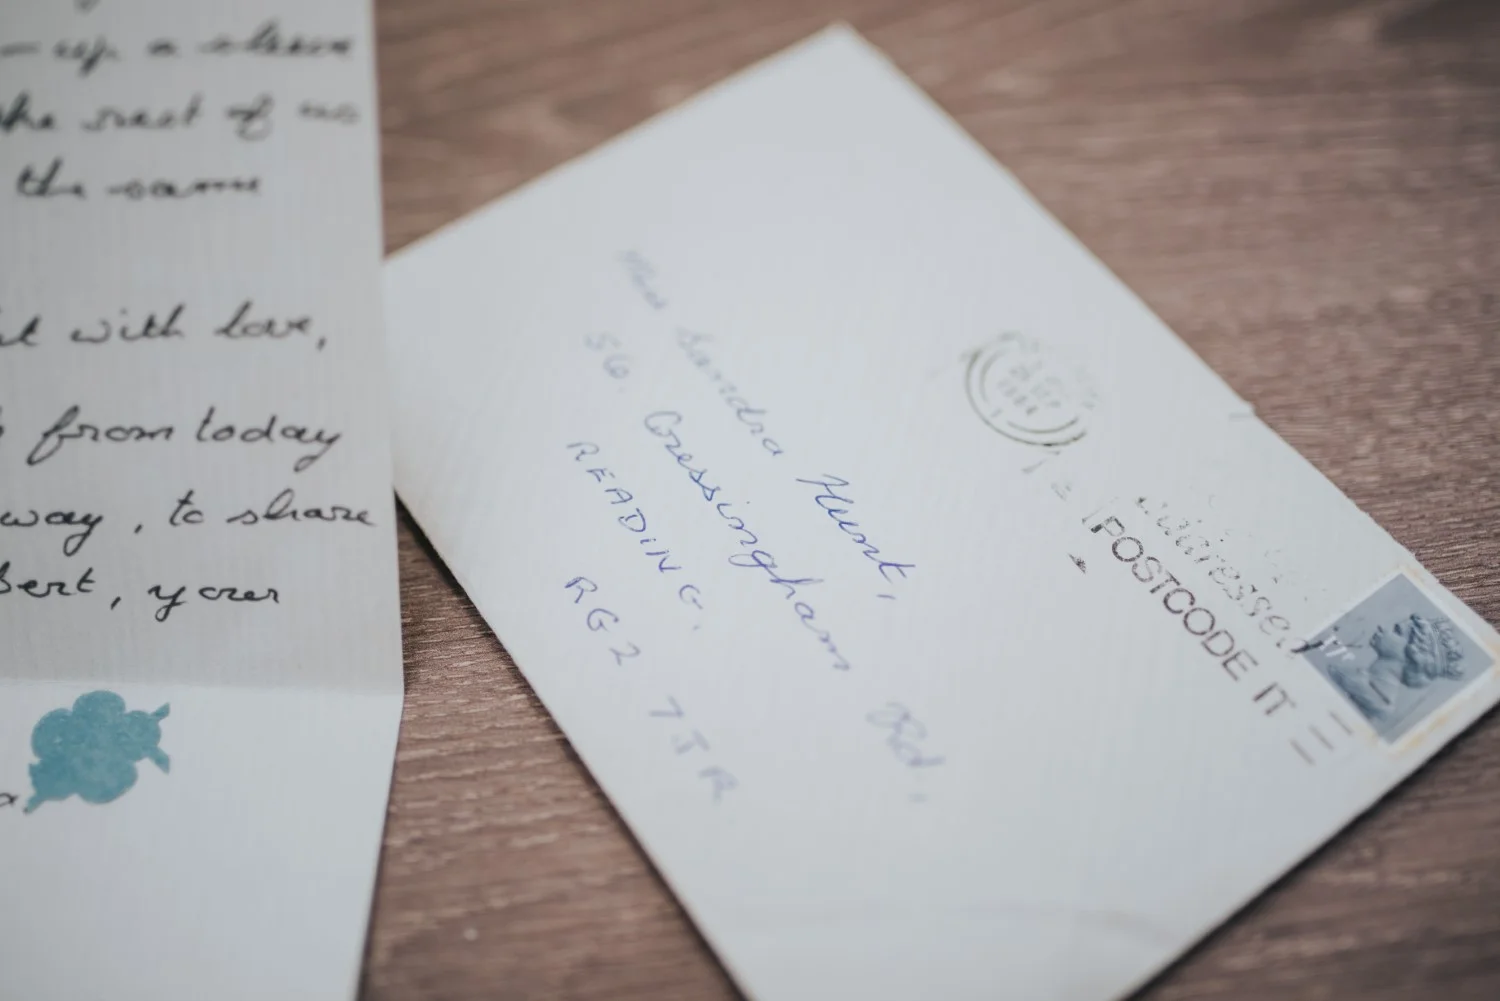 up a
the rest of us
the same
with love,
from today
way, to share
bert, your
Miss Sandra Hunt,
56. Gressingham Rd.
READING.
RG2 7JR
SEP
addressed
POSTCODE IT